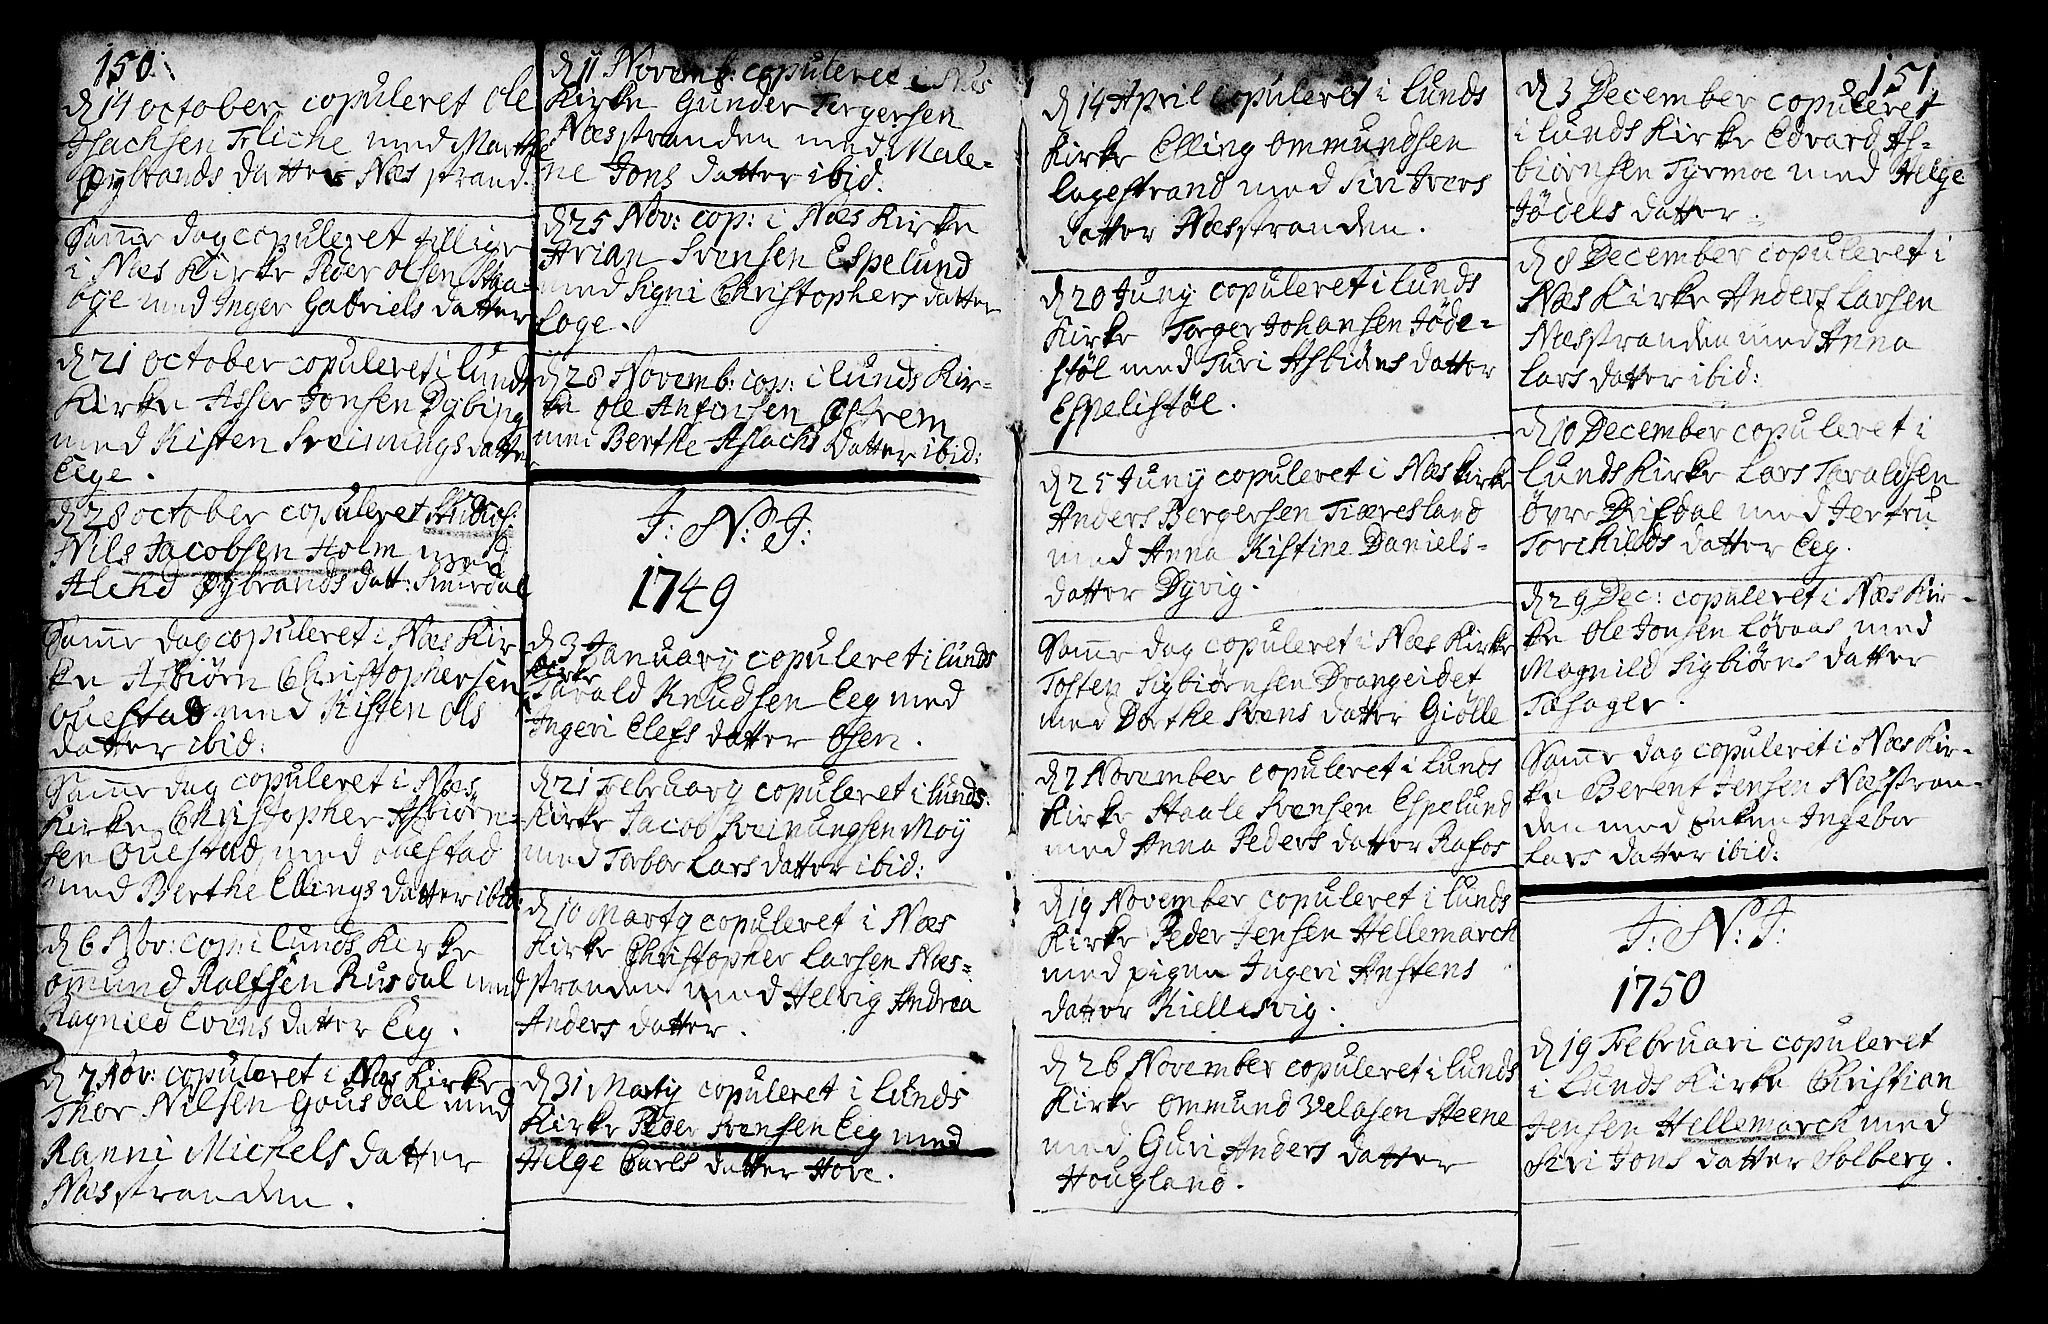 150
d 14 october copuleret Ole
Isachsen Fliche med Marthe
Øybrands datter Næsstrand.
Same dag copuleret tillige
i Næs Kirke Peder Olsen Staa-
bge med Inger Gabriels datter
d 21 october copuleret i Lunds
Kirke Asser Jonsen Dybing
med Kisten Sveinungs datter
Eege.
d 28 october copuleret Studios:
Nils Jacobsen Holm med
Alehd Øybrands datt: Suirdal
Same dag copuleret i Næs Kir
ke Asbiörn Christophersen
Ouestad med Kisten Ols
datter ibid:
Same dag copuleret i Næs
Kirke Christopher Asbiörn-
sen Ouestad med ouestad
med Berthe Ellings datter ibid:
d 6 Nov: cop: i Lunds Kirke
Omund Ralfsen Rusdal med
Ragnild Evens datter Eeg.
d 7 Nov: copuleret i Næs Kirke
Thor Nilsen Gousdal med
Ranni Michels datter
Næsstranden.
d 11 Novemb: copuleret i Næs
Kirke Gunder Tergersen
Næsstranden med Male-
ne Jons datter ibid.
d 25 Nov: cop: i Næs Kirke
Arian Svensen Espelund
med Signi Christophers datter
Loge.
d 28 Novemb: cop: i Lunds Kir-
ke Ole Anfinsen Østrem
med Berthe Aslachs Datter ibid:
J: N: J:
1749
d 3 January copuleret i Lunds
Kirke
Tarald Knudsen Eeg med
Ingeri Elefs datter Osen.
d 21 February copuleret i Lunds
Kirke Jacob Sveinungsen Moy
med Torbor Lars datter ibid:
d 10 Marty copuleret i Næs
Kirke Christopher Larsen Næs-
stranden med Helvig Andrea
Anders datter.
d 31 Marty copuleret i Lunds
Kirke Peder Svensen Eeg med
Helge Carls datter Hove.
d 14 April copuleret i Lunds
Kirke Elling Ommundsen
Lagestrand med Siri Ivers
datter Næsstranden.
d 20 Juny copuleret i Lunds
Kirke Torger Johansen Jöde-
stöl med Turi Asbiörns datter
Espelistöl.
d 25 Juny copuleret i Næs Kirke
Anders Bergersen Tiæresland
med Anna Kistine Daniels-
datter Dyvig.
Same dag copuleret i Næs Kirke
Tosten Sigbiørnsen Drangeidet
med Dorthe Svens datter Giölle
d 7 November copuleret i Lunds
Kirke Staale Svensen Espelund
med Anna Peders datter Rafos
d 19 November copuleret i Lunds
Kirke Peder Jensen Hellemarch
med pigen Ingeri Anstens
datter Kiellesvig.
d 26 November copuleret i Lunds
Kirke Ommund Velasen Steene
med Guri Anders datter
Hougland.
151
d 3 December copuleret
i Lunds Kirke Edvard As-
biörnsen Tyrmoe med Helge
Jödels datter.
d 8 December copuleret i
Næs Kirke Anders Larsen
Næsstranden med Anna
Lars datter ibid:
d 10 December copuleret i
Lunds Kirke Lars Taraldsen
Øvre Drifdal med Jertru
Torchilds datter Eeg.
d 29 Dec: copuleret i Næs Kir-
ke Ole Jonsen Lövaas med
Magnild Sigbiörns datter
Tæsager.
Same dag copuleret i Næs Kir-
ke Berent Jensen Næsstran-
den med enken Ingebor
Lars datter ibid:
J: N: J:
1750
d 19 Februari copuleret
i Lunds Kirke Christian
Jensen Hellemarch med
Siri Jons datter Solberg.